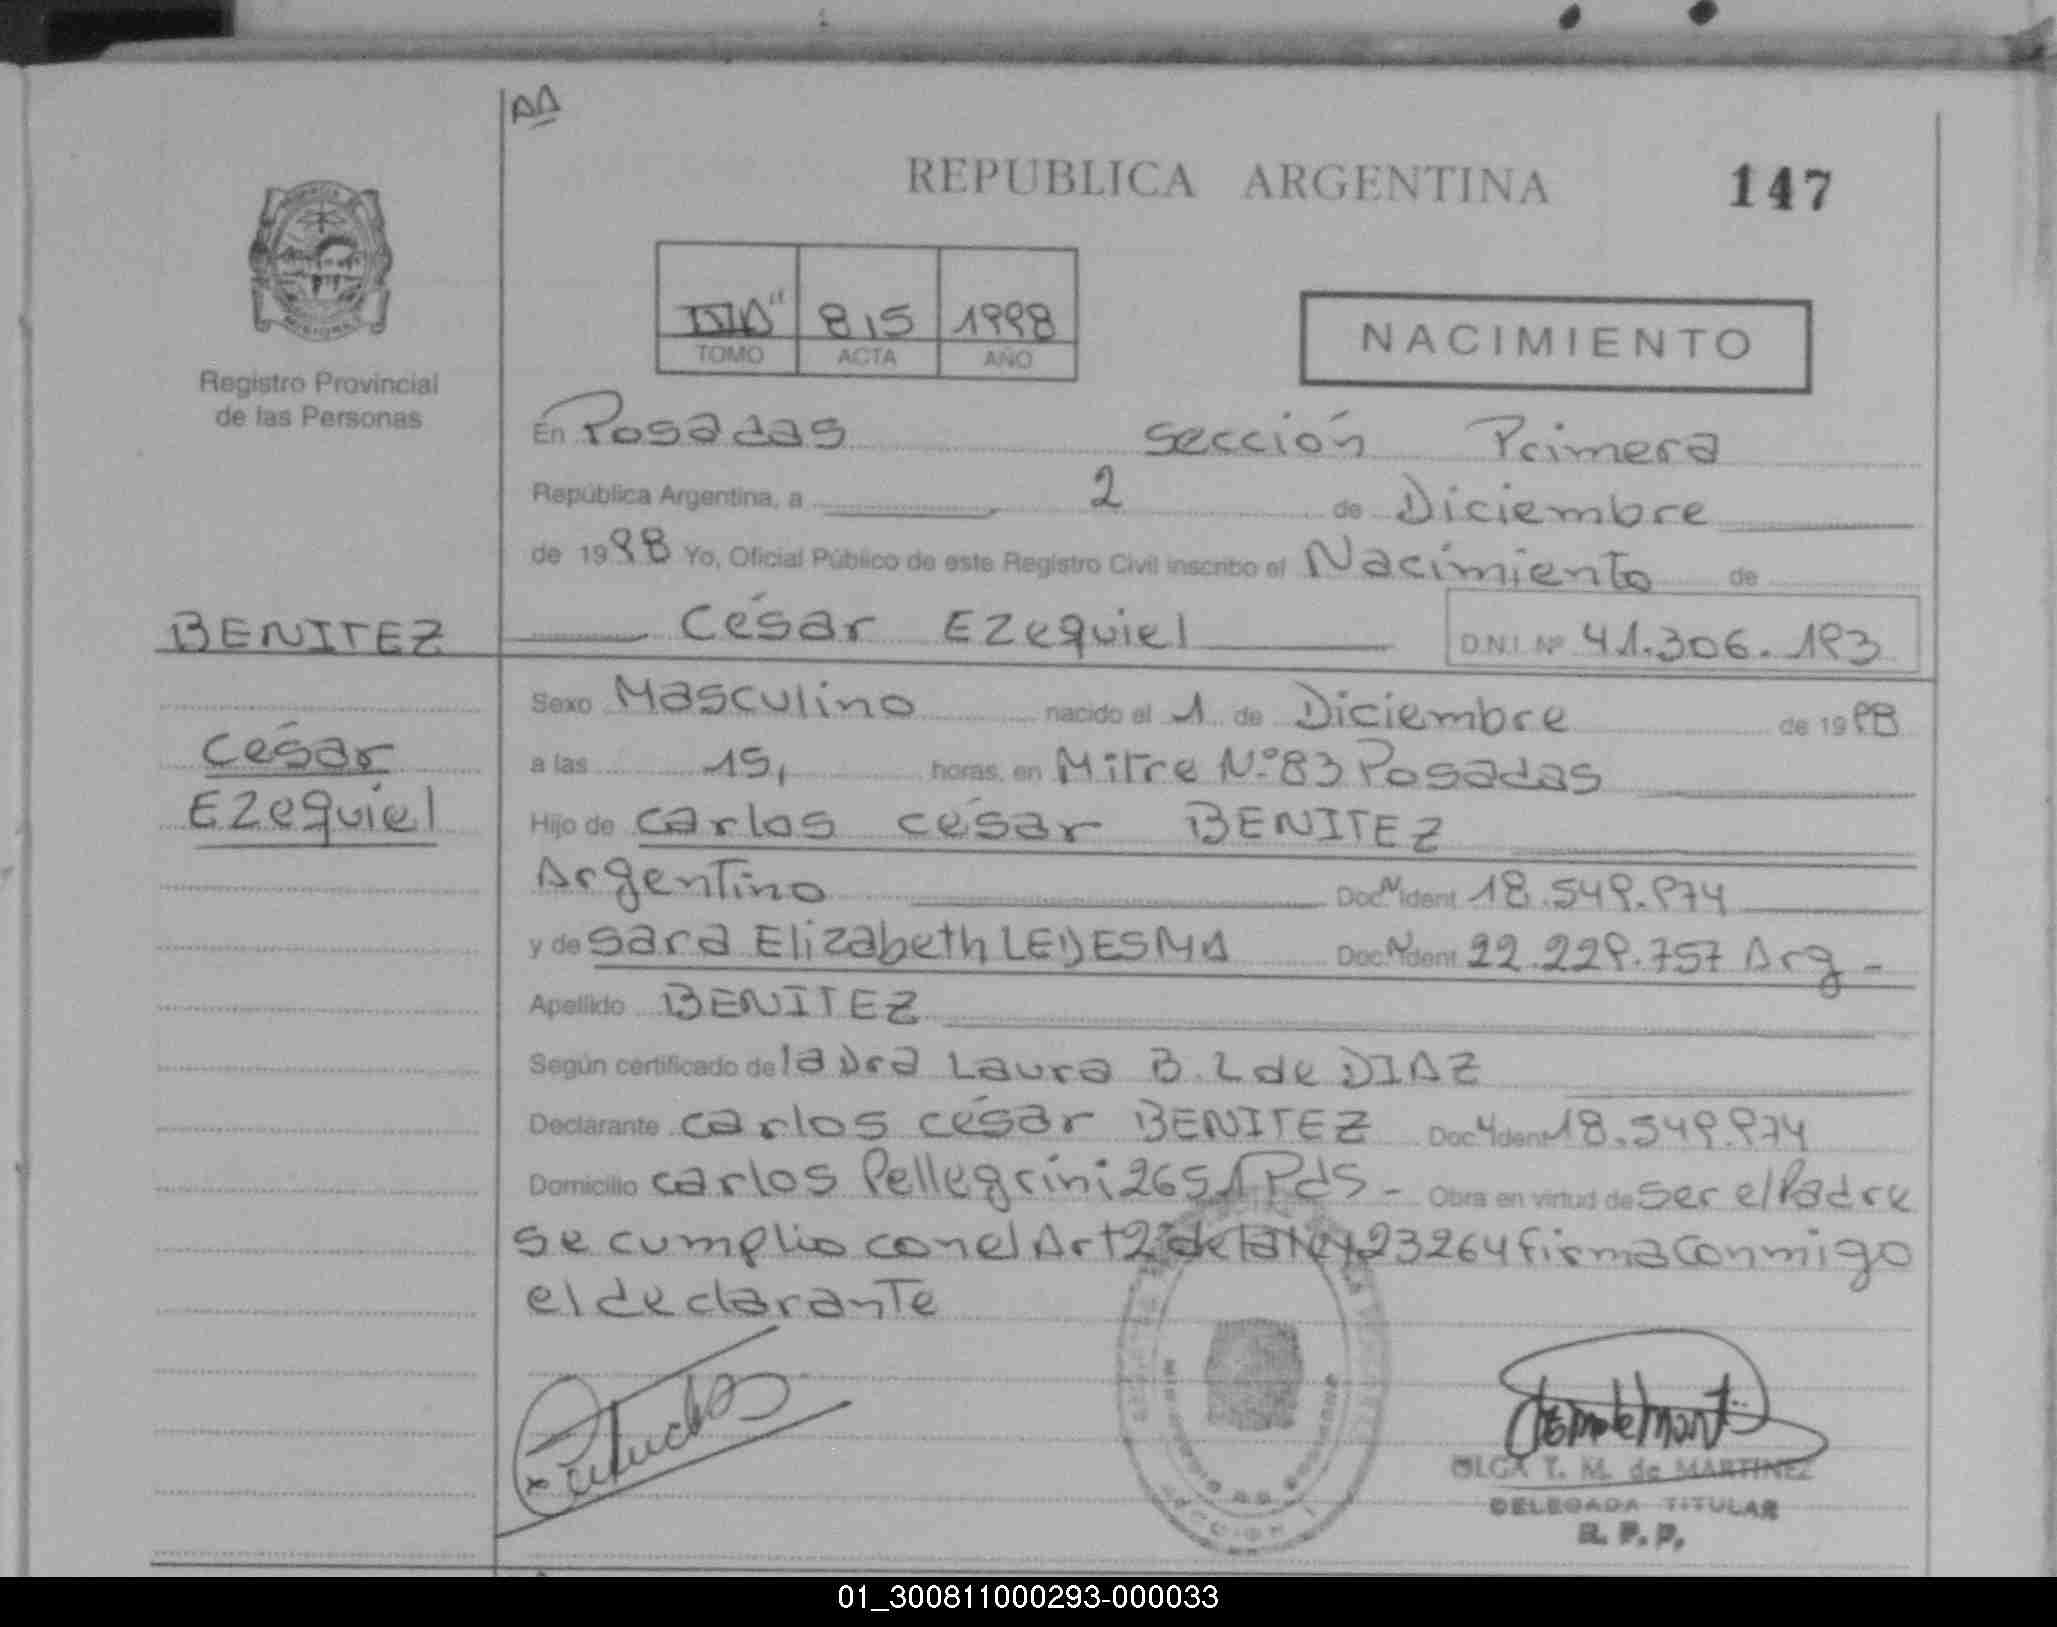 AA
REPUBLICA ARGENTINA 147
815 1998
TOMO ACTA AÑO
NACIMIENTO
Registro Provincial
de las Personas
En Posadas sección Primera
República Argentina, a 2 de Diciembre
de 1998 Yo, Oficial Público de este Registro Civil inscribo el Nacimiento de
BENITEZ César Ezequiel D.N.I. Nº 41.306.193
Sexo Masculino nacido el 1 de Diciembre de 1998
César
a las 15, horas, en Mitre N.º 83 Posadas
Ezequiel
Hijo de Carlos César BENITEZ
Argentino Doc. Ident 18.549.974
y de Sara Elizabeth LEDESMA Doc. Ident 22.229.757 Arg -
Apellido BENITEZ
Según certificado de la Dra Laura B. L de DIAZ
Declarante Carlos César BENITEZ Doc Ident 18.549.974
Domicilio Carlos Pellegrini 2651 Pds - Obra en virtud de ser el Padre
se cumplio con el Art 2º de la ley 23264 firma conmigo
el declarante
OLGA T. M. de MARTINEZ
DELEGADA TITULAR
R. P. P.
01_300811000293-000033